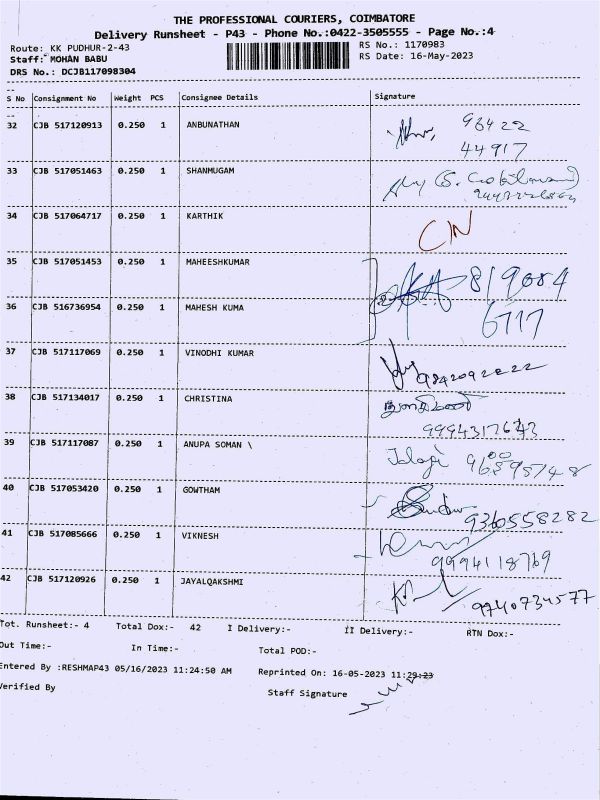 THE PROFESSIONAL COURIERS, COIMBATORE
Delivery Runsheet - P43 - Phone No.:0422-3505555 - Page No.:4
Route: KK PUDHUR-2-43 RS No.: 1170983
Staff: MOHAN BABU RS Date: 16-May-2023
DRS No.: DCJB117098304
S No Consignment No Weight PCS Consignee Details Signature
32 CJB 517120913 0.250 1 ANBUNATHAN 96422
44917
33 CJB 517051463 0.250 1 SHANMUGAM
34 CJB 517064717 0.250 1 KARTHIK CN
35 CJB 517051453 0.250 1 MAHEESHKUMAR 819084
36 CJB 516736954 0.250 1 MAHESH KUMA 6717
37 CJB 517117069 0.250 1 VINODHI KUMAR 9842092222
38 CJB 517134017 0.250 1 CHRISTINA
9994317643
39 CJB 517117087 0.250 1 ANUPA SOMAN \
40 CJB 517053420 0.250 1 GOWTHAM 9360558282
41 CJB 517085666 0.250 1 VIKNESH 9994118769
42 CJB 517120926 0.250 1 JAYALQAKSHMI 9940734577
Tot. Runsheet:- 4 Total Dox:- 42 I Delivery:- II Delivery:- RTN Dox:-
Out Time:- In Time:- Total POD:-
Entered By :RESHMAP43 05/16/2023 11:24:50 AM Reprinted On: 16-05-2023 11:29:23
Verified By Staff Signature